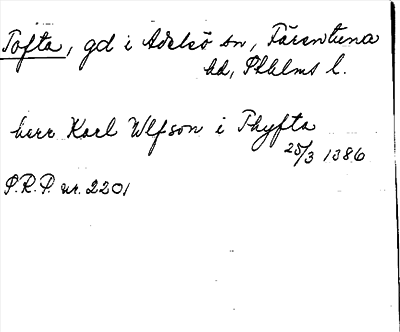 Tofta, gd i Adelsö sn, Färentuna
hd, Sthlms l.
herr Karl Ulfson i Thyfta
25/3 1386
S.R.P. nr. 2201